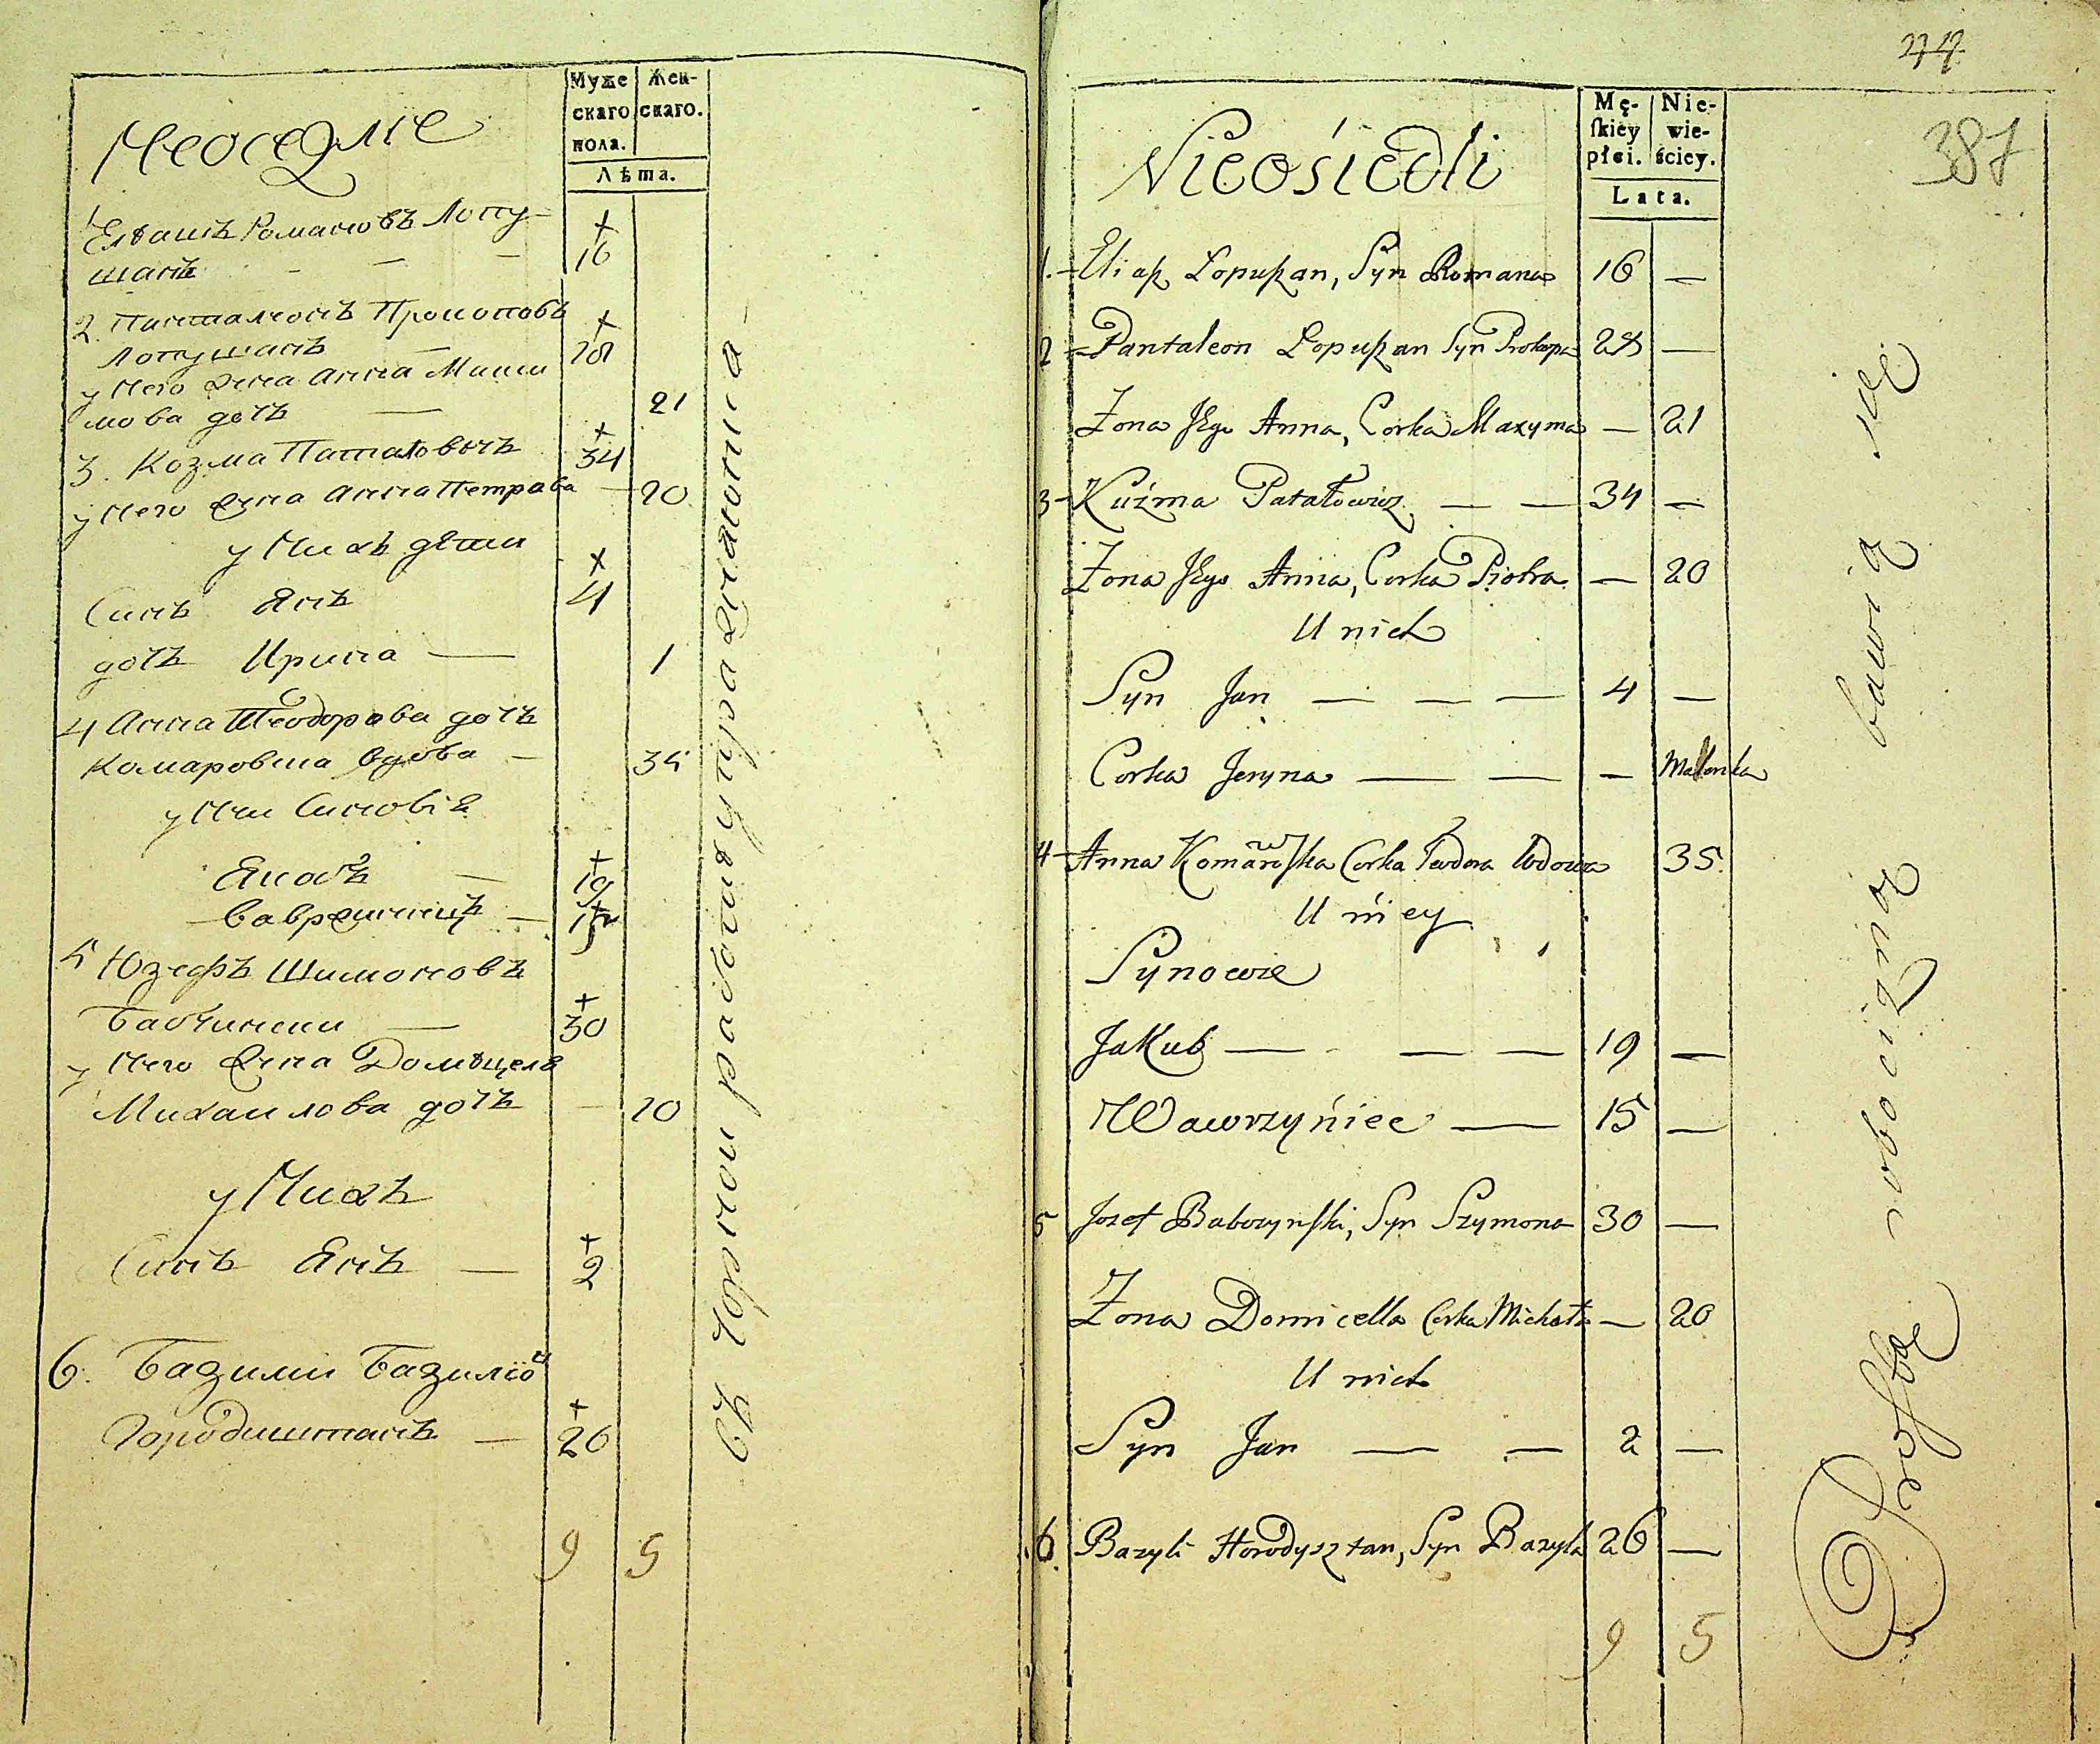 Муже
скаго
пола.
Жен-
скаго.
Лѣта.
Неоседліе
1 Еліашъ Романовъ Лопу-
шанъ — — — 16
2. Панталеонъ Прокоповъ
Лопушанъ — 28
у Него жена Анна Макси
мова дочъ — 21
3. Козма Паталовичъ 34
у Него жена Анна Петрова — 20
у Нихъ дѣти
Синъ Янъ 4
дочъ Ирина — 1
4 Анна Теодорова дочъ
Комаровска вдова — 35
у Ней Синовіе
Якобъ — 19
Вавренецъ — 15
5 Юзефъ Шимоновъ
Бабчински — 30
у Него жена Домѣцеля
Михаилова дочъ — 20
у Нихъ
Синъ Янъ — 2
6. Базили Базилio
Городиштанъ — 26
9 5
274.
387
Mę-
skiey
płci.
Nie-
wie-
ściey.
Lata.
Nieośiedli
1. Eliasz Lopuszan, Syn Romana 16 —
2 Pantaleon Lopuszan Syn Prokopa 28 —
Żona Jego Anna, Corka Maxyma — 21
3 Kuźma Patałowicz — — 34 —
Żona Jego Anna, Corka Piotra — 20
U nich
Syn Jan — — — 4 —
Corka Jeryna — — — Malenka
4 Anna Komarowska Corka Teodora Wdowa 35
U niey
Synowie
Jakub — — — 19 —
Wawrzyńiec — 15 —
5 Jozef Babczynski, Syn Szymona 30 —
Żona Domicella Corka Michała — 20
U nich
Syn Jan — — 2 —
6. Bazyli Horodysztan, Syn Bazyla 26 —
9 5
Prostą robocizną bawią się